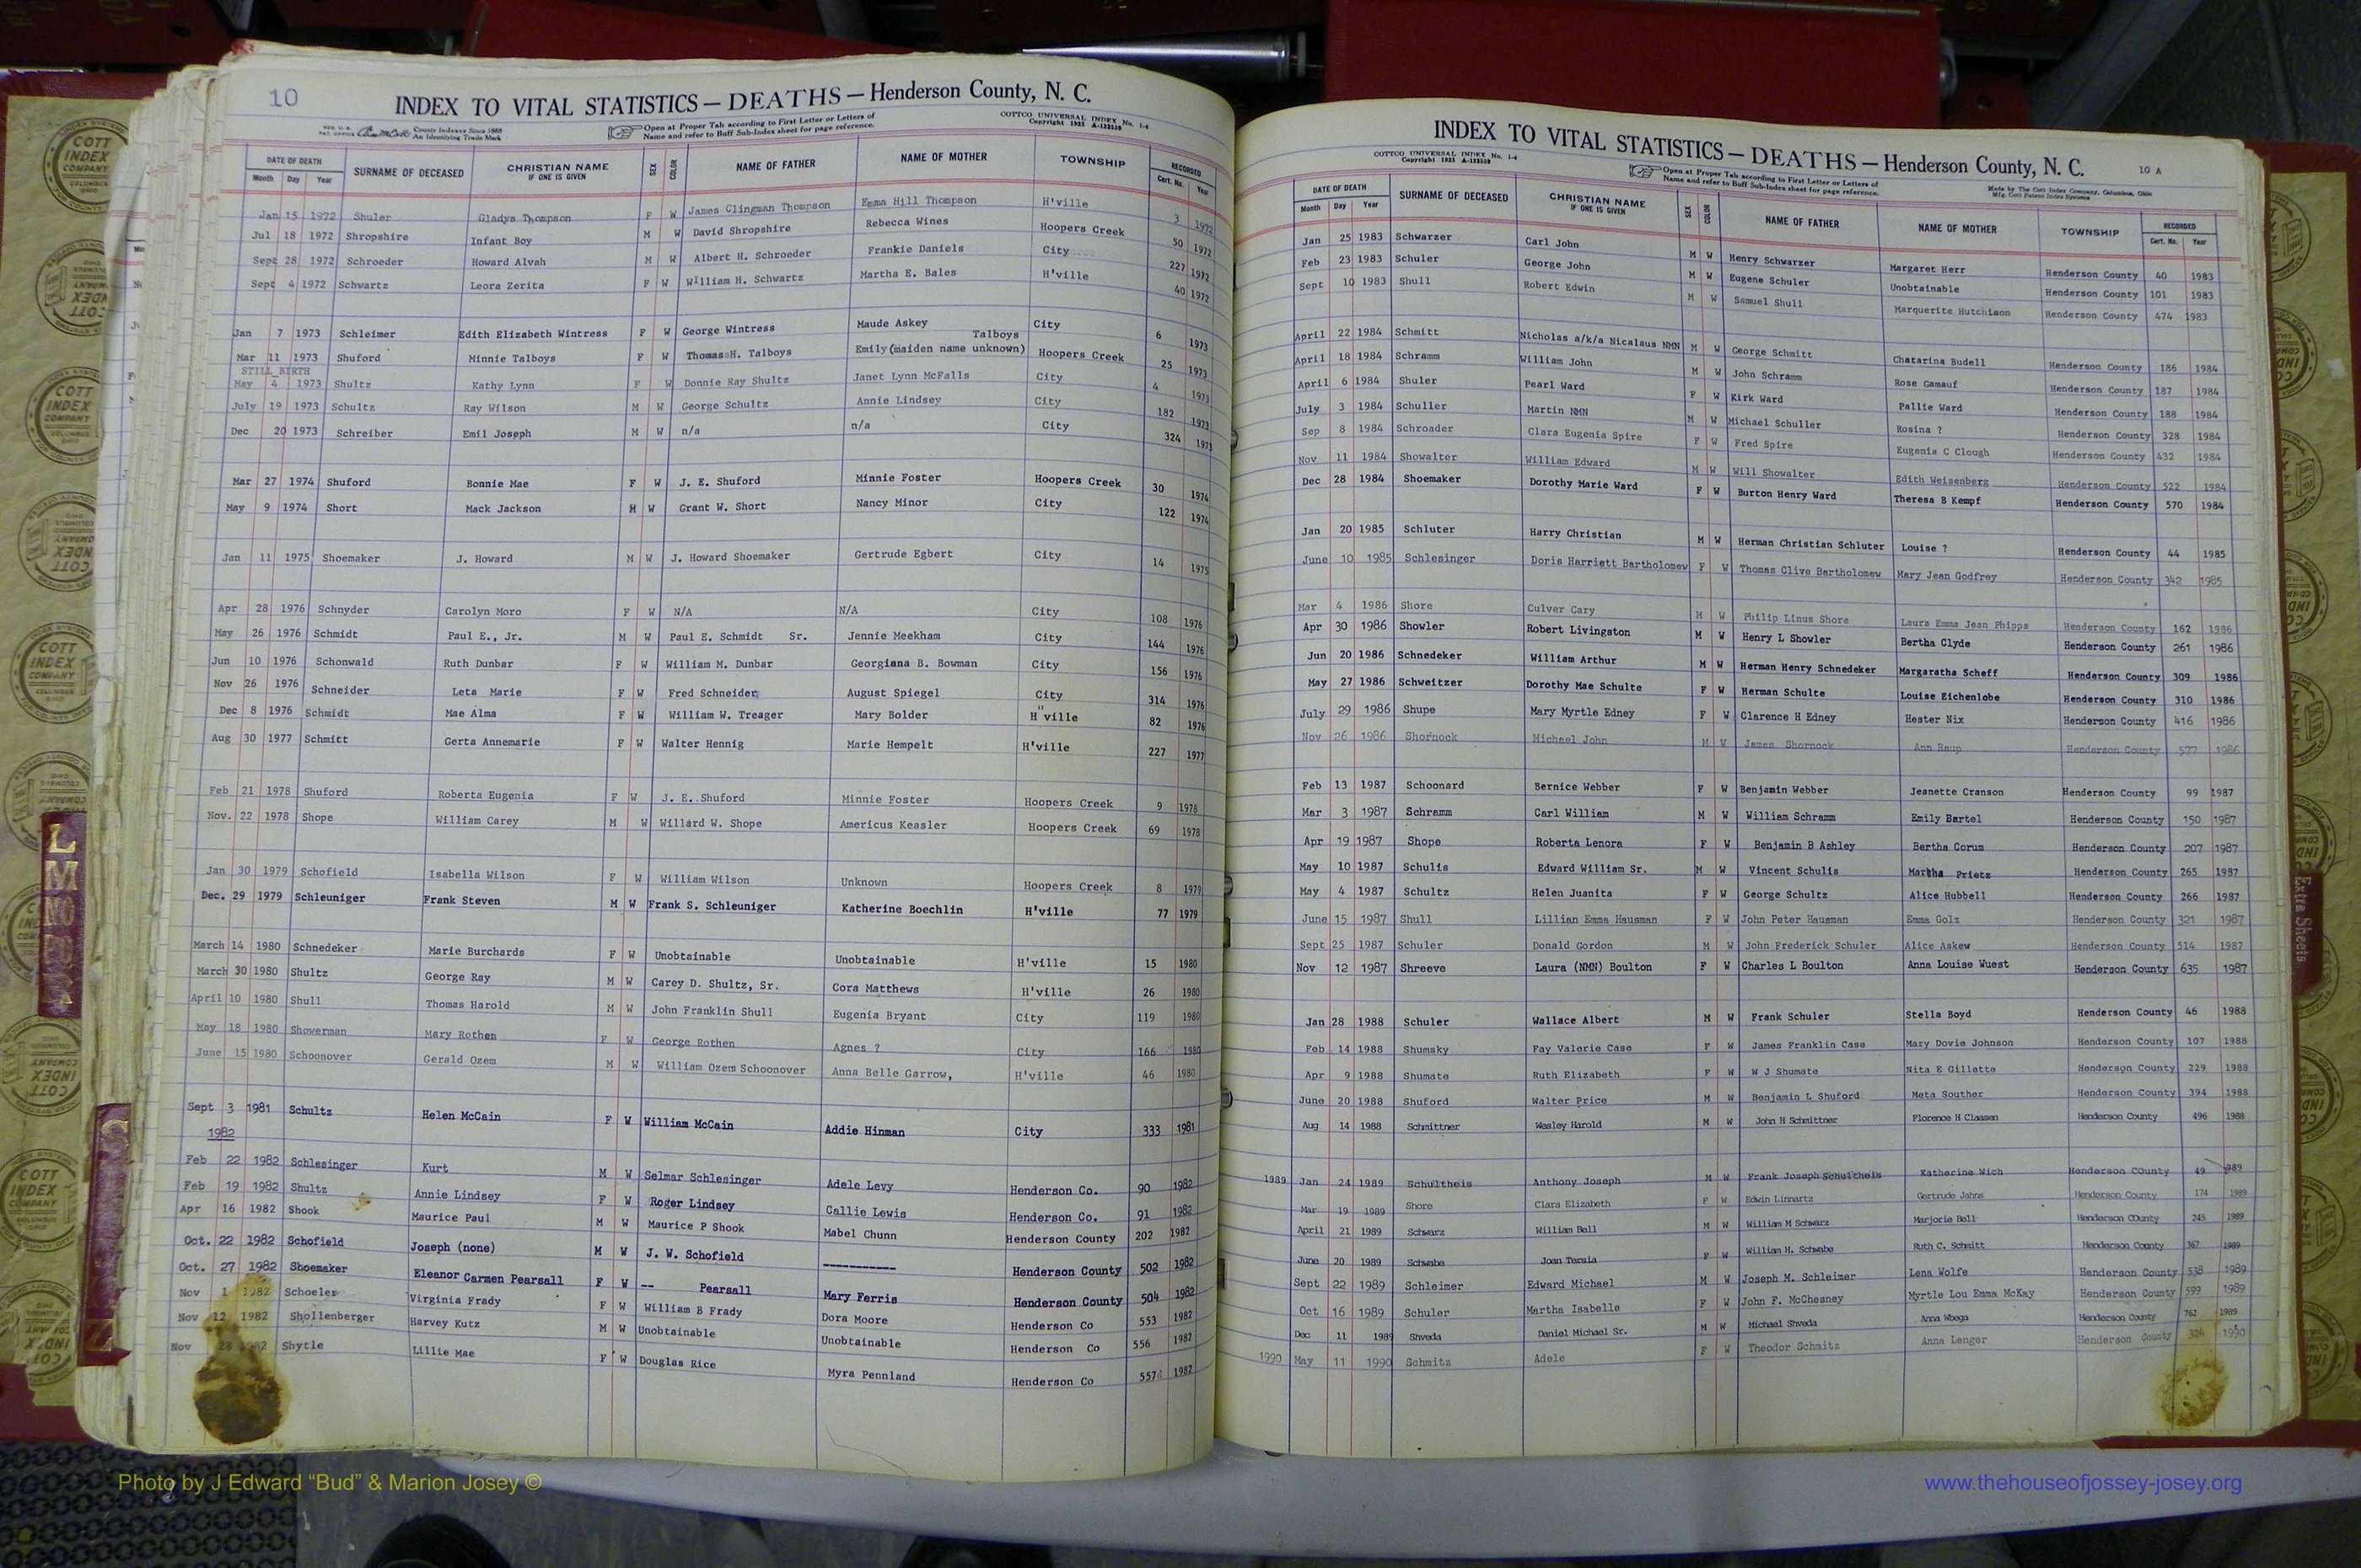 10
INDEX TO VITAL STATISTICS — DEATHS — Henderson County, N. C.
County Indexes Since 1888
An Identifying Trade Mark
Open at Proper Tab according to First Letter or Letters of
Name and refer to Buff Sub-Index sheet for page reference.
COTTCO UNIVERSAL INDEX No. 1-4
DATE OF DEATH SURNAME OF DECEASED CHRISTIAN NAME IF ONE IS GIVEN SEX COLOR NAME OF FATHER NAME OF MOTHER TOWNSHIP RECORDED
Month Day Year Cert. No. Year
Jan 15 1972 Shuler Gladys Thompson F W James Clingman Thompson Emma Hill Thompson H'ville 3 1972
Jul 18 1972 Shropshire Infant Boy M W David Shropshire Rebecca Wines Hoopers Creek 50 1972
Sept 28 1972 Schroeder Howard Alvah M W Albert H. Schroeder Frankie Daniels City 227 1972
Sept 4 1972 Schwartz Leora Zerita F W William H. Schwartz Martha E. Bales H'ville 40 1972
Jan 7 1973 Schleimer Edith Elizabeth Wintress F W George Wintress Maude Askey City 6 1973
Talboys
Mar 11 1973 Shuford Minnie Talboys F W Thomas H. Talboys Emily (maiden name unknown) Hoopers Creek 25 1973
STILL BIRTH
May 4 1973 Shultz Kathy Lynn F W Donnie Ray Shultz Janet Lynn McFalls City 4 1973
July 19 1973 Schultz Ray Wilson M W George Schultz Annie Lindsey City 182 1973
Dec 20 1973 Schreiber Emil Joseph M W n/a n/a City 324 1973
Mar 27 1974 Shuford Bonnie Mae F W J. E. Shuford Minnie Foster Hoopers Creek 30 1974
May 9 1974 Short Mack Jackson M W Grant W. Short Nancy Minor City 122 1974
Jan 11 1975 Shoemaker J. Howard M W J. Howard Shoemaker Gertrude Egbert City 14 1975
Apr 28 1976 Schnyder Carolyn Moro F W N/A N/A City 108 1976
May 26 1976 Schmidt Paul E., Jr. M W Paul E. Schmidt Sr. Jennie Meekham City 144 1976
Jun 10 1976 Schonwald Ruth Dunbar F W William M. Dunbar Georgiana B. Bowman City 156 1976
Nov 26 1976 Schneider Leta Marie F W Fred Schneider August Spiegel City 314 1976
Dec 8 1976 Schmidt Mae Alma F W William W. Treager Mary Bolder H"ville 82 1976
Aug 30 1977 Schmitt Gerta Annemarie F W Walter Hennig Marie Hempelt H'ville 227 1977
Feb 21 1978 Shuford Roberta Eugenia F W J. E. Shuford Minnie Foster Hoopers Creek 9 1978
Nov. 22 1978 Shope William Carey M W Willard W. Shope Americus Keasler Hoopers Creek 69 1978
Jan 30 1979 Schofield Isabella Wilson F W William Wilson Unknown Hoopers Creek 8 1979
Dec. 29 1979 Schleuniger Frank Steven M W Frank S. Schleuniger Katherine Boechlin H'ville 77 1979
March 14 1980 Schnedeker Marie Burchards F W Unobtainable Unobtainable H'ville 15 1980
March 30 1980 Shultz George Ray M W Carey D. Shultz, Sr. Cora Matthews H'ville 26 1980
April 10 1980 Shull Thomas Harold M W John Franklin Shull Eugenia Bryant City 119 1980
May 18 1980 Showerman Mary Rothen F W George Rothen Agnes ? City 166 1980
June 15 1980 Schoonover Gerald Ozem M W William Ozem Schoonover Anna Belle Garrow, H'ville 46 1980
Sept 3 1981 Schultz Helen McCain F W William McCain Addie Hinman City 333 1981
1982
Feb 22 1982 Schlesinger Kurt M W Selmar Schlesinger Adele Levy Henderson Co. 90 1982
Feb 19 1982 Shultz Annie Lindsey F W Roger Lindsey Callie Lewis Henderson Co. 91 1982
Apr 16 1982 Shook Maurice Paul M W Maurice P Shook Mabel Chunn Henderson County 202 1982
Oct. 22 1982 Schofield Joseph (none) M W J. W. Schofield ----------- Henderson County 502 1982
Oct. 27 1982 Shoemaker Eleanor Carmen Pearsall F W -- Pearsall Mary Ferris Henderson County 504 1982
Nov 1 1982 Schoeler Virginia Frady F W William B Frady Dora Moore Henderson Co 553 1982
Nov 12 1982 Shollenberger Harvey Kutz M W Unobtainable Unobtainable Henderson Co 556 1982
Nov 28 1982 Shytle Lillie Mae F W Douglas Rice Myra Pennland Henderson Co 557 1982
INDEX TO VITAL STATISTICS — DEATHS — Henderson County, N. C.
10 A
COTTCO UNIVERSAL INDEX No. 1-4
Open at Proper Tab according to First Letter or Letters of
Name and refer to Buff Sub-Index sheet for page reference.
Made by The Cott Index Company, Columbus, Ohio
DATE OF DEATH SURNAME OF DECEASED CHRISTIAN NAME IF ONE IS GIVEN SEX COLOR NAME OF FATHER NAME OF MOTHER TOWNSHIP RECORDED
Month Day Year Cert. No. Year
Jan 25 1983 Schwarzer Carl John M W Henry Schwarzer Margaret Herr Henderson County 40 1983
Feb 23 1983 Schuler George John M W Eugene Schuler Unobtainable Henderson County 101 1983
Sept 10 1983 Shull Robert Edwin M W Samuel Shull Marquerite Hutchison Henderson County 474 1983
April 22 1984 Schmitt Nicholas a/k/a Nicalaus NMN M W George Schmitt Chatarina Budell Henderson County 186 1984
April 18 1984 Schramm William John M W John Schramm Rose Gamauf Henderson County 187 1984
April 6 1984 Shuler Pearl Ward F W Kirk Ward Pallie Ward Henderson County 188 1984
July 3 1984 Schuller Martin NMN M W Michael Schuller Rosina ? Henderson County 328 1984
Sep 8 1984 Schroader Clara Eugenia Spire F W Fred Spire Eugenia C Clough Henderson County 432 1984
Nov 11 1984 Showalter William Edward M W Will Showalter Edith Weisenberg Henderson County 522 1984
Dec 28 1984 Shoemaker Dorothy Marie Ward F W Burton Henry Ward Theresa B Kempf Henderson County 570 1984
Jan 20 1985 Schluter Harry Christian M W Herman Christian Schluter Louise ? Henderson County 44 1985
June 10 1985 Schlesinger Doris Harriett Bartholomew F W Thomas Clive Bartholomew Mary Jean Godfrey Henderson County 342 1985
Mar 4 1986 Shore Culver Cary M W Philip Linus Shore Laura Emma Jean Phipps Henderson County 162 1986
Apr 30 1986 Showler Robert Livingston M W Henry L Showler Bertha Clyde Henderson County 261 1986
Jun 20 1986 Schnedeker William Arthur M W Herman Henry Schnedeker Margaratha Scheff Henderson County 309 1986
May 27 1986 Schweitzer Dorothy Mae Schulte F W Herman Schulte Louise Eichenlobe Henderson County 310 1986
July 29 1986 Shupe Mary Myrtle Edney F W Clarence H Edney Hester Nix Henderson County 416 1986
Nov 26 1986 Shornock Michael John M W James Shornock Ann Raup Henderson County 577 1986
Feb 13 1987 Schoonard Bernice Webber F W Benjamin Webber Jeanette Cranson Henderson County 99 1987
Mar 3 1987 Schramm Carl William M W William Schramm Emily Bartel Henderson County 150 1987
Apr 19 1987 Shope Roberta Lenora F W Benjamin B Ashley Bertha Corum Henderson County 207 1987
May 10 1987 Schulis Edward William Sr. M W Vincent Schulis Martha Prietz Henderson County 265 1987
May 4 1987 Schultz Helen Juanita F W George Schultz Alice Hubbell Henderson County 266 1987
June 15 1987 Shull Lillian Emma Hausman F W John Peter Hausman Emma Golz Henderson County 321 1987
Sept 25 1987 Schuler Donald Gordon M W John Frederick Schuler Alice Askew Henderson County 514 1987
Nov 12 1987 Shreeve Laura (NMN) Boulton F W Charles L Boulton Anna Louise Wuest Henderson County 635 1987
Jan 28 1988 Schuler Wallace Albert M W Frank Schuler Stella Boyd Henderson County 46 1988
Feb 14 1988 Shumsky Fay Valerie Case F W James Franklin Case Mary Dovie Johnson Henderson County 107 1988
Apr 9 1988 Shumate Ruth Elizabeth F W W J Shumate Nita E Gillette Henderson County 229 1988
June 20 1988 Shuford Walter Price M W Benjamin L Shuford Meta Souther Henderson County 394 1988
Aug 14 1988 Schmittner Wesley Harold M W John H Schmittner Florence H Claasen Henderson County 496 1988
1989 Jan 24 1989 Schultheis Anthony Joseph M W Frank Joseph Schultheis Katherine Wich Henderson COunty 49 1989
Mar 19 1989 Shore Clara Elizabeth F W Edwin Linnartz Gertrude Jahns Henderson County 174 1989
April 21 1989 Schwarz William Bell M W William M Schwarz Marjorie Bell Henderson COunty 245 1989
June 20 1989 Schwabe Joan Tersia F W William H. Schwabe Ruth C. Schmitt Henderson County 367 1989
Sept 22 1989 Schleimer Edward Michael M W Joseph M. Schleimer Lena Wolfe Henderson County 538 1989
Oct 16 1989 Schuler Martha Isabelle F W John F. McChesney Myrtle Lou Emma McKay Henderson County 599 1989
Dec 11 1989 Shveda Daniel Michael Sr. M W Michael Shveda Anna Woega Henderson County 762 1989
1990 May 11 1990 Schmitz Adele F W Theodor Schmitz Anna Lenger Henderson County 324 1990
L
M
Extra Sheets
COTT INDEX COMPANY COLUMBUS OHIO
Photo by J Edward “Bud” & Marion Josey ©
www.thehouseofjossey-josey.org